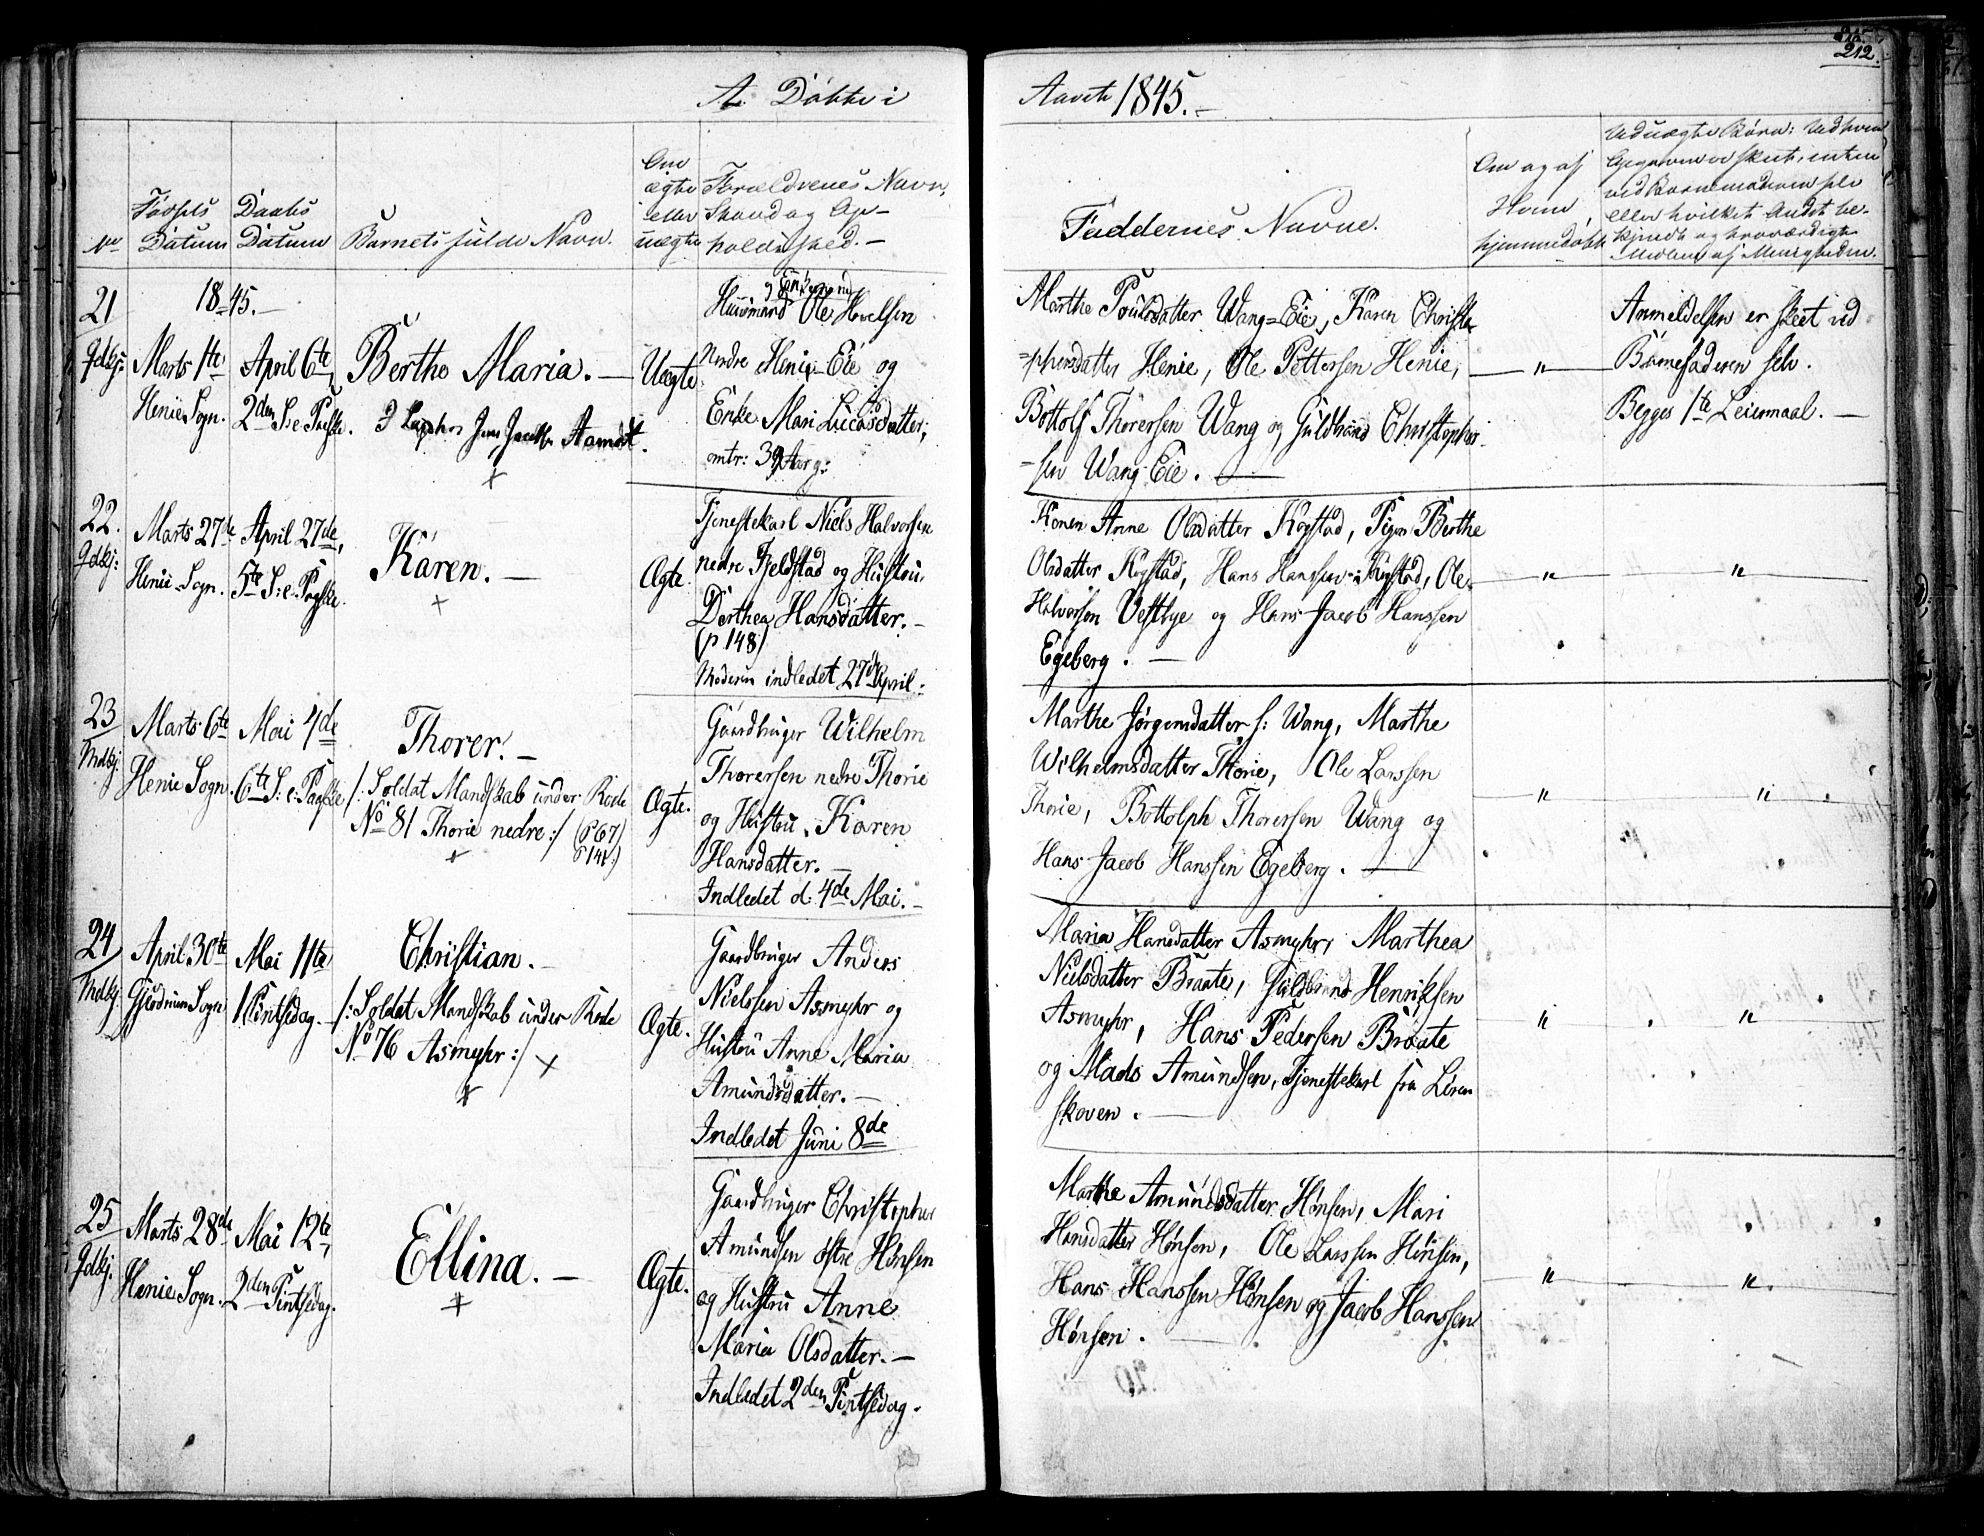 212.
A. Döbte i Aaret 1845.
No
Födsels Datum
Daabs Datum
Barnets fulde Navn.
Om ægte eller uægte
Forældrenes Navn, Stand og Opholdssted.
Faddernes Navne.
Om og af Hvem hjemmedøbt
Ved uægte Börn: Ved hvem Angivelsen er skeet, enten ved Barnemoderen selv eller hvilket andet bekjendt og troværdigt Medlem af Menigheden.
21
Qdkj:
1845.
Marts 1te
Henie Sogn.
April 6te
2den S: e: Paaske.
Berthe Maria.
Jens Jacobs Aamodt.
Uægte.
Huusmand og Enkemand
Ole Hovelsen
Nedre Henie-Eie og
Enke Mari Lucasdatter,
omtr: 39 Aarg:
Marthe Poulsdatter Wang-Eie, Karen Christo-
-phersdatter Henie, Ole Pettersen Henie,
Bottolf Thorersen Wang og Guldbrand Christopher-
-sen Wang-Eie.
"
Anmeldelsen er skeet ved
Barnefaderen selv.
Begges 1te Leiermaal.
22.
Qdkj:
Marts 27de
Henie Sogn.
April 27de,
5te S: e: Paaske.
Karen.
Ægte.
Tjenestekarl Niels Halvorsen
nedre Fjeldstad og Hustru
Dorthea Hansdatter.
(p 148)
Moderen indledet 27de April.
Konen Anne Olsdatter Kogstad, Pigen Berthe
Olsdatter Kogstad, Hans Hanssen Kogstad, Ole
Halvorsen Vestbye og Hans Jacob Hanssen
Egeberg.
" "
23
Mdkj
Marts 6te
Henie Sogn.
Mai 4de
6te S: e: Paaske
Thorer.
/: Soldat Mandskab under Rode
No 81 Thorie nedre :/ (P 67)
Ægte.
Gaardbruger Wilhelm
Thorersen nedre Thorie
og Hustru Karen
Hansdatter.
Indledet d: 4de Mai.
Marthe Jörgensdatter f: Wang, Marthe
Wilhelmsdatter Thorie, Ole Larssen
Thorie, Bottolph Thorersen Wang og
Hans Jacob Hanssen Egeberg.
" "
24
Mdkj
April 30te
Gjerdrum Sogn
Mai 11te
1 Pintsedag.
Christian.
/: Soldat Mandskab under Rode
No 76 Asmyhr :/
Ægte.
Gaardbruger Anders
Nielssen Asmyhr og
Hustru Anne Maria
Amundsdatter.
Indledet Juni 8de
Maria Hansdatter Asmyhr, Marthea
Nielsdatter Braate, Guldbrand Henriksen
Asmyhr, Hans Pedersen Braate
og Mads Amundsen, Tjenestekarl fra Lören
skoven.
" "
25
Qdkj.
Marts 28de
Henie Sogn.
Mai 12te,
2den Pintsedag.
Ellina.
Ægte.
Gaardbruger Christopher
Amundsen östre Hönsen
og Hustru Anne
Maria Olsdatter.
Indledet 2den Pintsedag.
Marthe Amundsdatter Hönsen, Mari
Hansdatter Hönsen, Ole Larssen Hönsen,
Hans Hanssen Hönsen og Jacob Hanssen
Hönsen.
" "